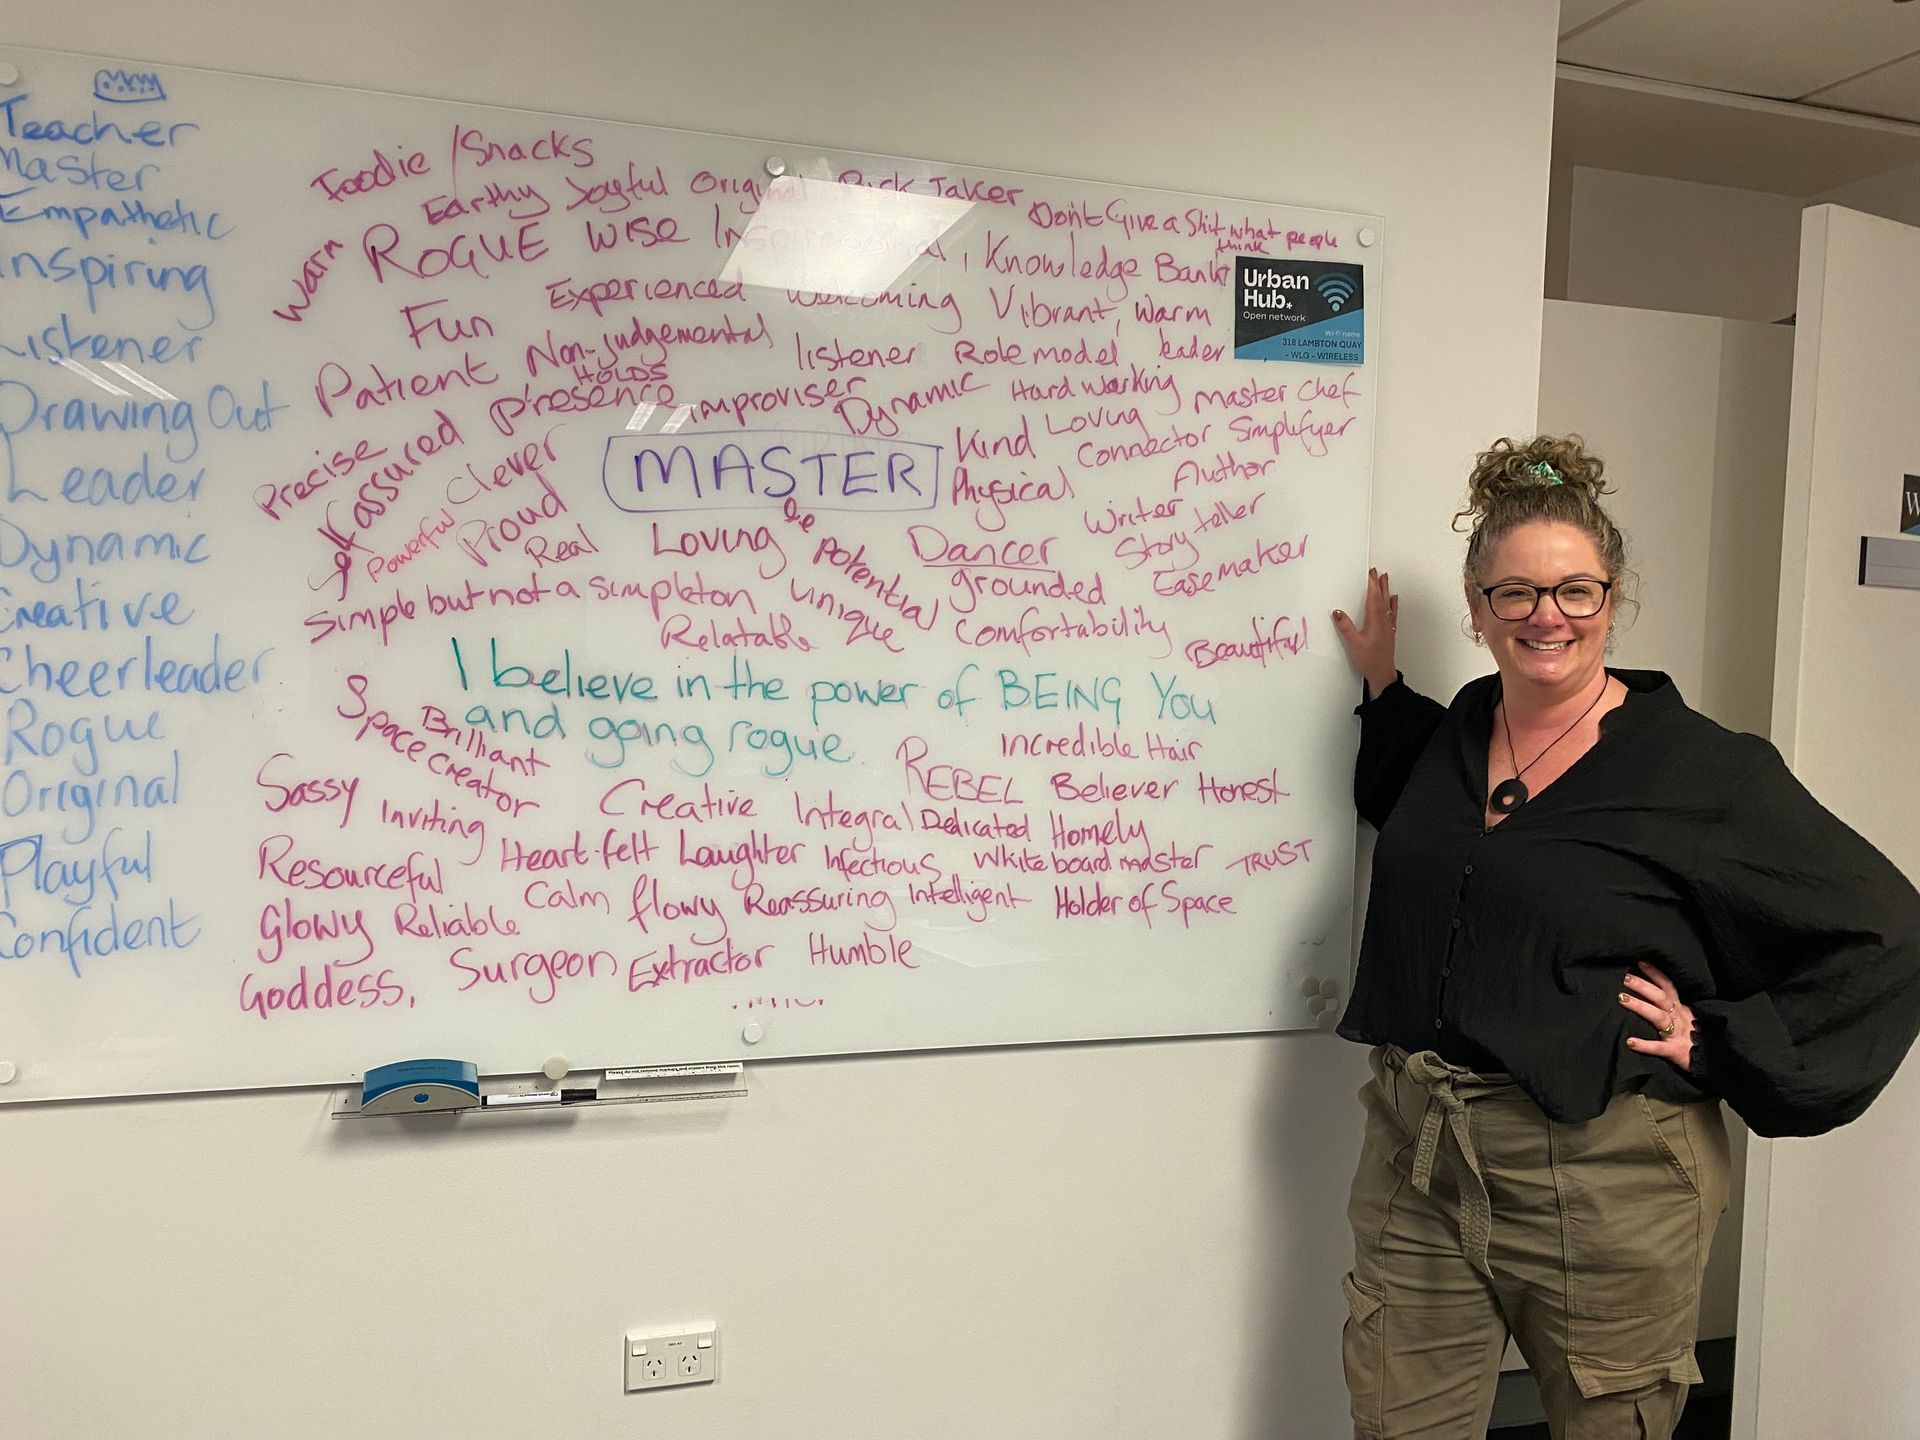 Teacher
Master
Empathetic
Inspiring
Listener
Drawing Out
Leader
Dynamic
Creative
Cheerleader
Rogue
Original
Playful
Confident
Foodie /Snacks
Earthy Joyful Original Risk Taker
Don't Give a Shit what people
think
Warm
ROGUE WISE Inspirational, Knowledge Bank
Fun Experienced Welcoming Vibrant, Warm
Patient Non-judgemental listener Role model leader
HOLDS
presence improviser Dynamic Hard working Master Chef
Precise
assured
Clever
Kind Loving
Connector Simplifyer
MASTER
Physical Author
Powerful Proud
Real Loving
potential
Dancer Writer
Story teller
Simple but not a simpleton unique grounded Easemaker
Relatable Comfortability Beautiful
I believe in the power of BEING YOU
and going rogue.
Space creator
Brilliant
REBEL Incredible Hair
Believer Honest
Sassy Inviting Creative Integral Dedicated Homely
Resourceful Heart-felt Laughter Infectious Whiteboard master TRUST
Glowy Reliable Calm flowy Reassuring Intelligent Holder of Space
Goddess, Surgeon Extractor Humble
Urban
Hub.
Open network
Wi-fi name
318 LAMBTON QUAY
- WLG - WIRELESS
Please do not remove markers and erasers from this room.
W